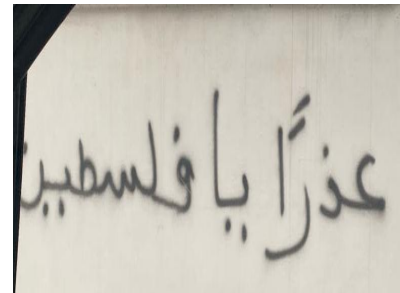 عذرًا يا فلسطين